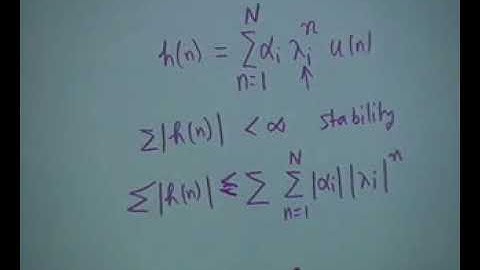 h(n) = Σ_{n=1}^{N} α_i λ_i^n u(n)
↑
Σ|h(n)| < ∞ stability
Σ|h(n)| ≤ Σ Σ_{n=1}^{N} |α_i| |λ_i|^n